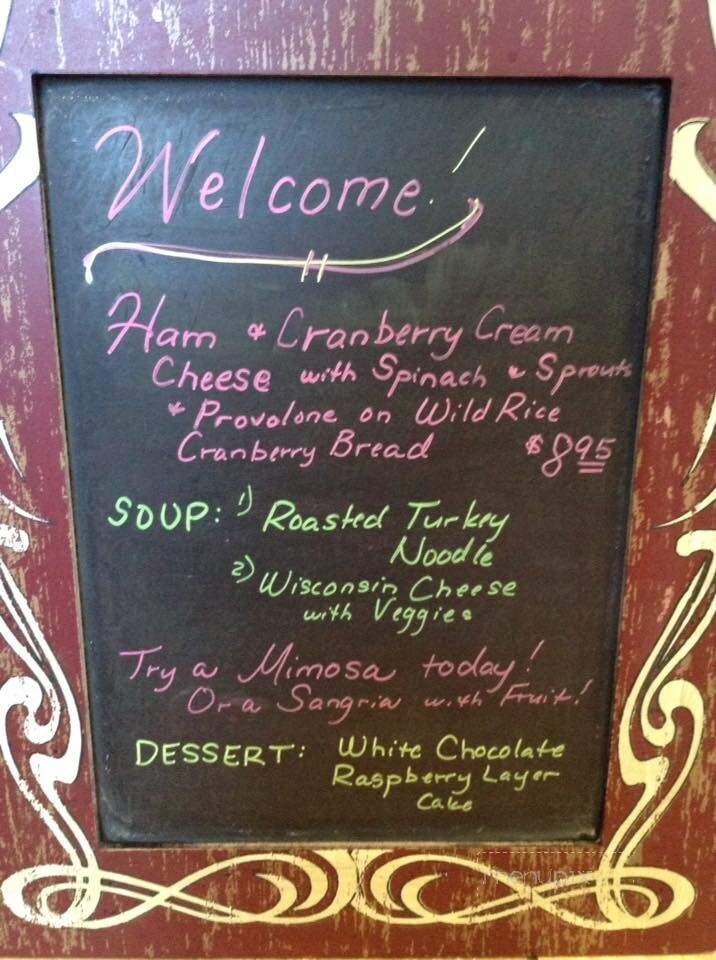 Welcome!
Ham & Cranberry Cream
Cheese with Spinach & Sprouts
& Provolone on Wild Rice
Cranberry Bread $8.95
SOUP: 1) Roasted Turkey
Noodle
2) Wisconsin Cheese
with Veggies
Try a Mimosa today!
Or a Sangria with Fruit!
DESSERT: White Chocolate
Raspberry Layer
Cake
menupix